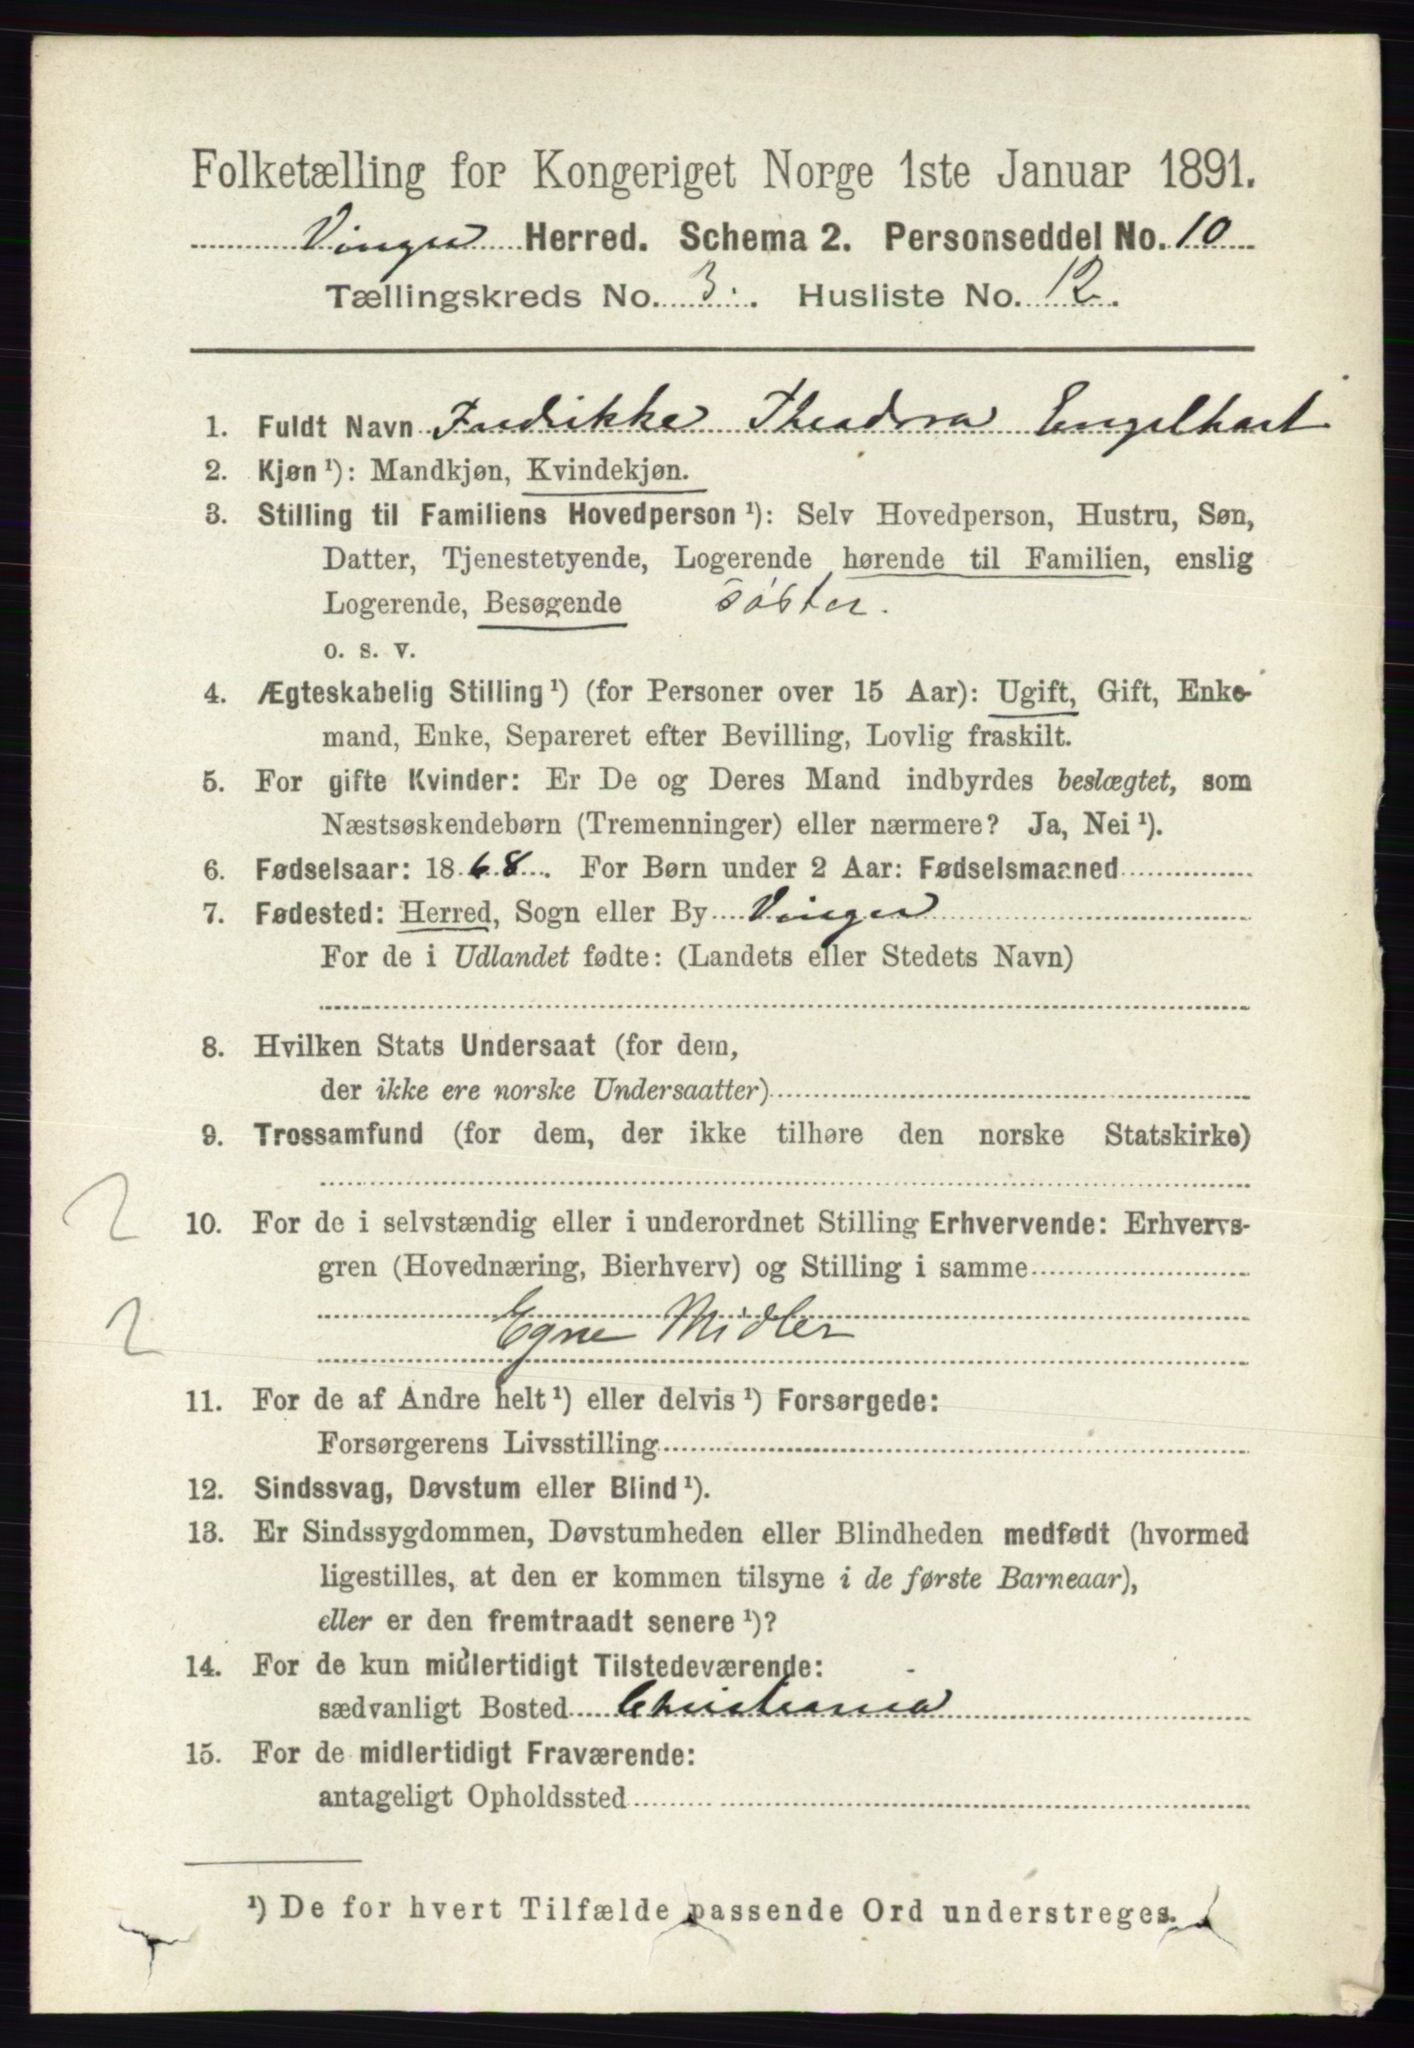 Folketælling for Kongeriget Norge 1ste Januar 1891.
Vinger Herred. Schema 2. Personseddel No. 10
Tællingskreds No. 3. Husliste No. 12.
1. Fuldt Navn Fredrikke Theodora Engelhart
2. Kjøn ¹): Mandkjøn, Kvindekjøn.
3. Stilling til Familiens Hovedperson ¹): Selv Hovedperson, Hustru, Søn,
Datter, Tjenestetyende, Logerende hørende til Familien, enslig
Logerende, Besøgende søster.
o. s. v.
4. Ægteskabelig Stilling ¹) (for Personer over 15 Aar): Ugift, Gift, Enke-
mand, Enke, Separeret efter Bevilling, Lovlig fraskilt.
5. For gifte Kvinder: Er De og Deres Mand indbyrdes beslægtet, som
Næstsøskendebørn (Tremenninger) eller nærmere? Ja, Nei ¹).
6. Fødselsaar: 1868. For Børn under 2 Aar: Fødselsmaaned
7. Fødested: Herred, Sogn eller By Vinger
For de i Udlandet fødte: (Landets eller Stedets Navn)
8. Hvilken Stats Undersaat (for dem,
der ikke ere norske Undersaatter)
9. Trossamfund (for dem, der ikke tilhøre den norske Statskirke)
2
10. For de i selvstændig eller i underordnet Stilling Erhvervende: Erhvervs-
gren (Hovednæring, Bierhverv) og Stilling i samme
2 Egne Midler
11. For de af Andre helt ¹) eller delvis ¹) Forsørgede:
Forsørgerens Livsstilling
12. Sindssvag, Døvstum eller Blind ¹).
13. Er Sindssygdommen, Døvstumheden eller Blindheden medfødt (hvormed
ligestilles, at den er kommen tilsyne i de første Barneaar),
eller er den fremtraadt senere ¹)?
14. For de kun midlertidigt Tilstedeværende:
sædvanligt Bosted Christiania
15. For de midlertidigt Fraværende:
antageligt Opholdssted
¹) De for hvert Tilfælde passende Ord understreges.